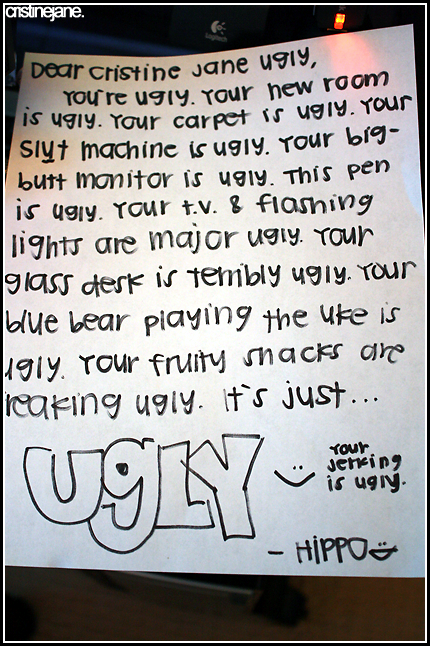 cristinejane.
Logitech
Dear Cristine Jane Ugly,
You're ugly. Your new room
is ugly. Your carpet is ugly. Your
slut machine is ugly. Your big-
butt monitor is ugly. This pen
is ugly. Your t.v. & flashing
lights are major ugly. Your
glass desk is terribly ugly. Your
blue bear playing the uke is
ugly. Your fruity snacks are
reaking ugly. It's just...
UGLY :)
Your
jerking
is ugly.
- HIPPO